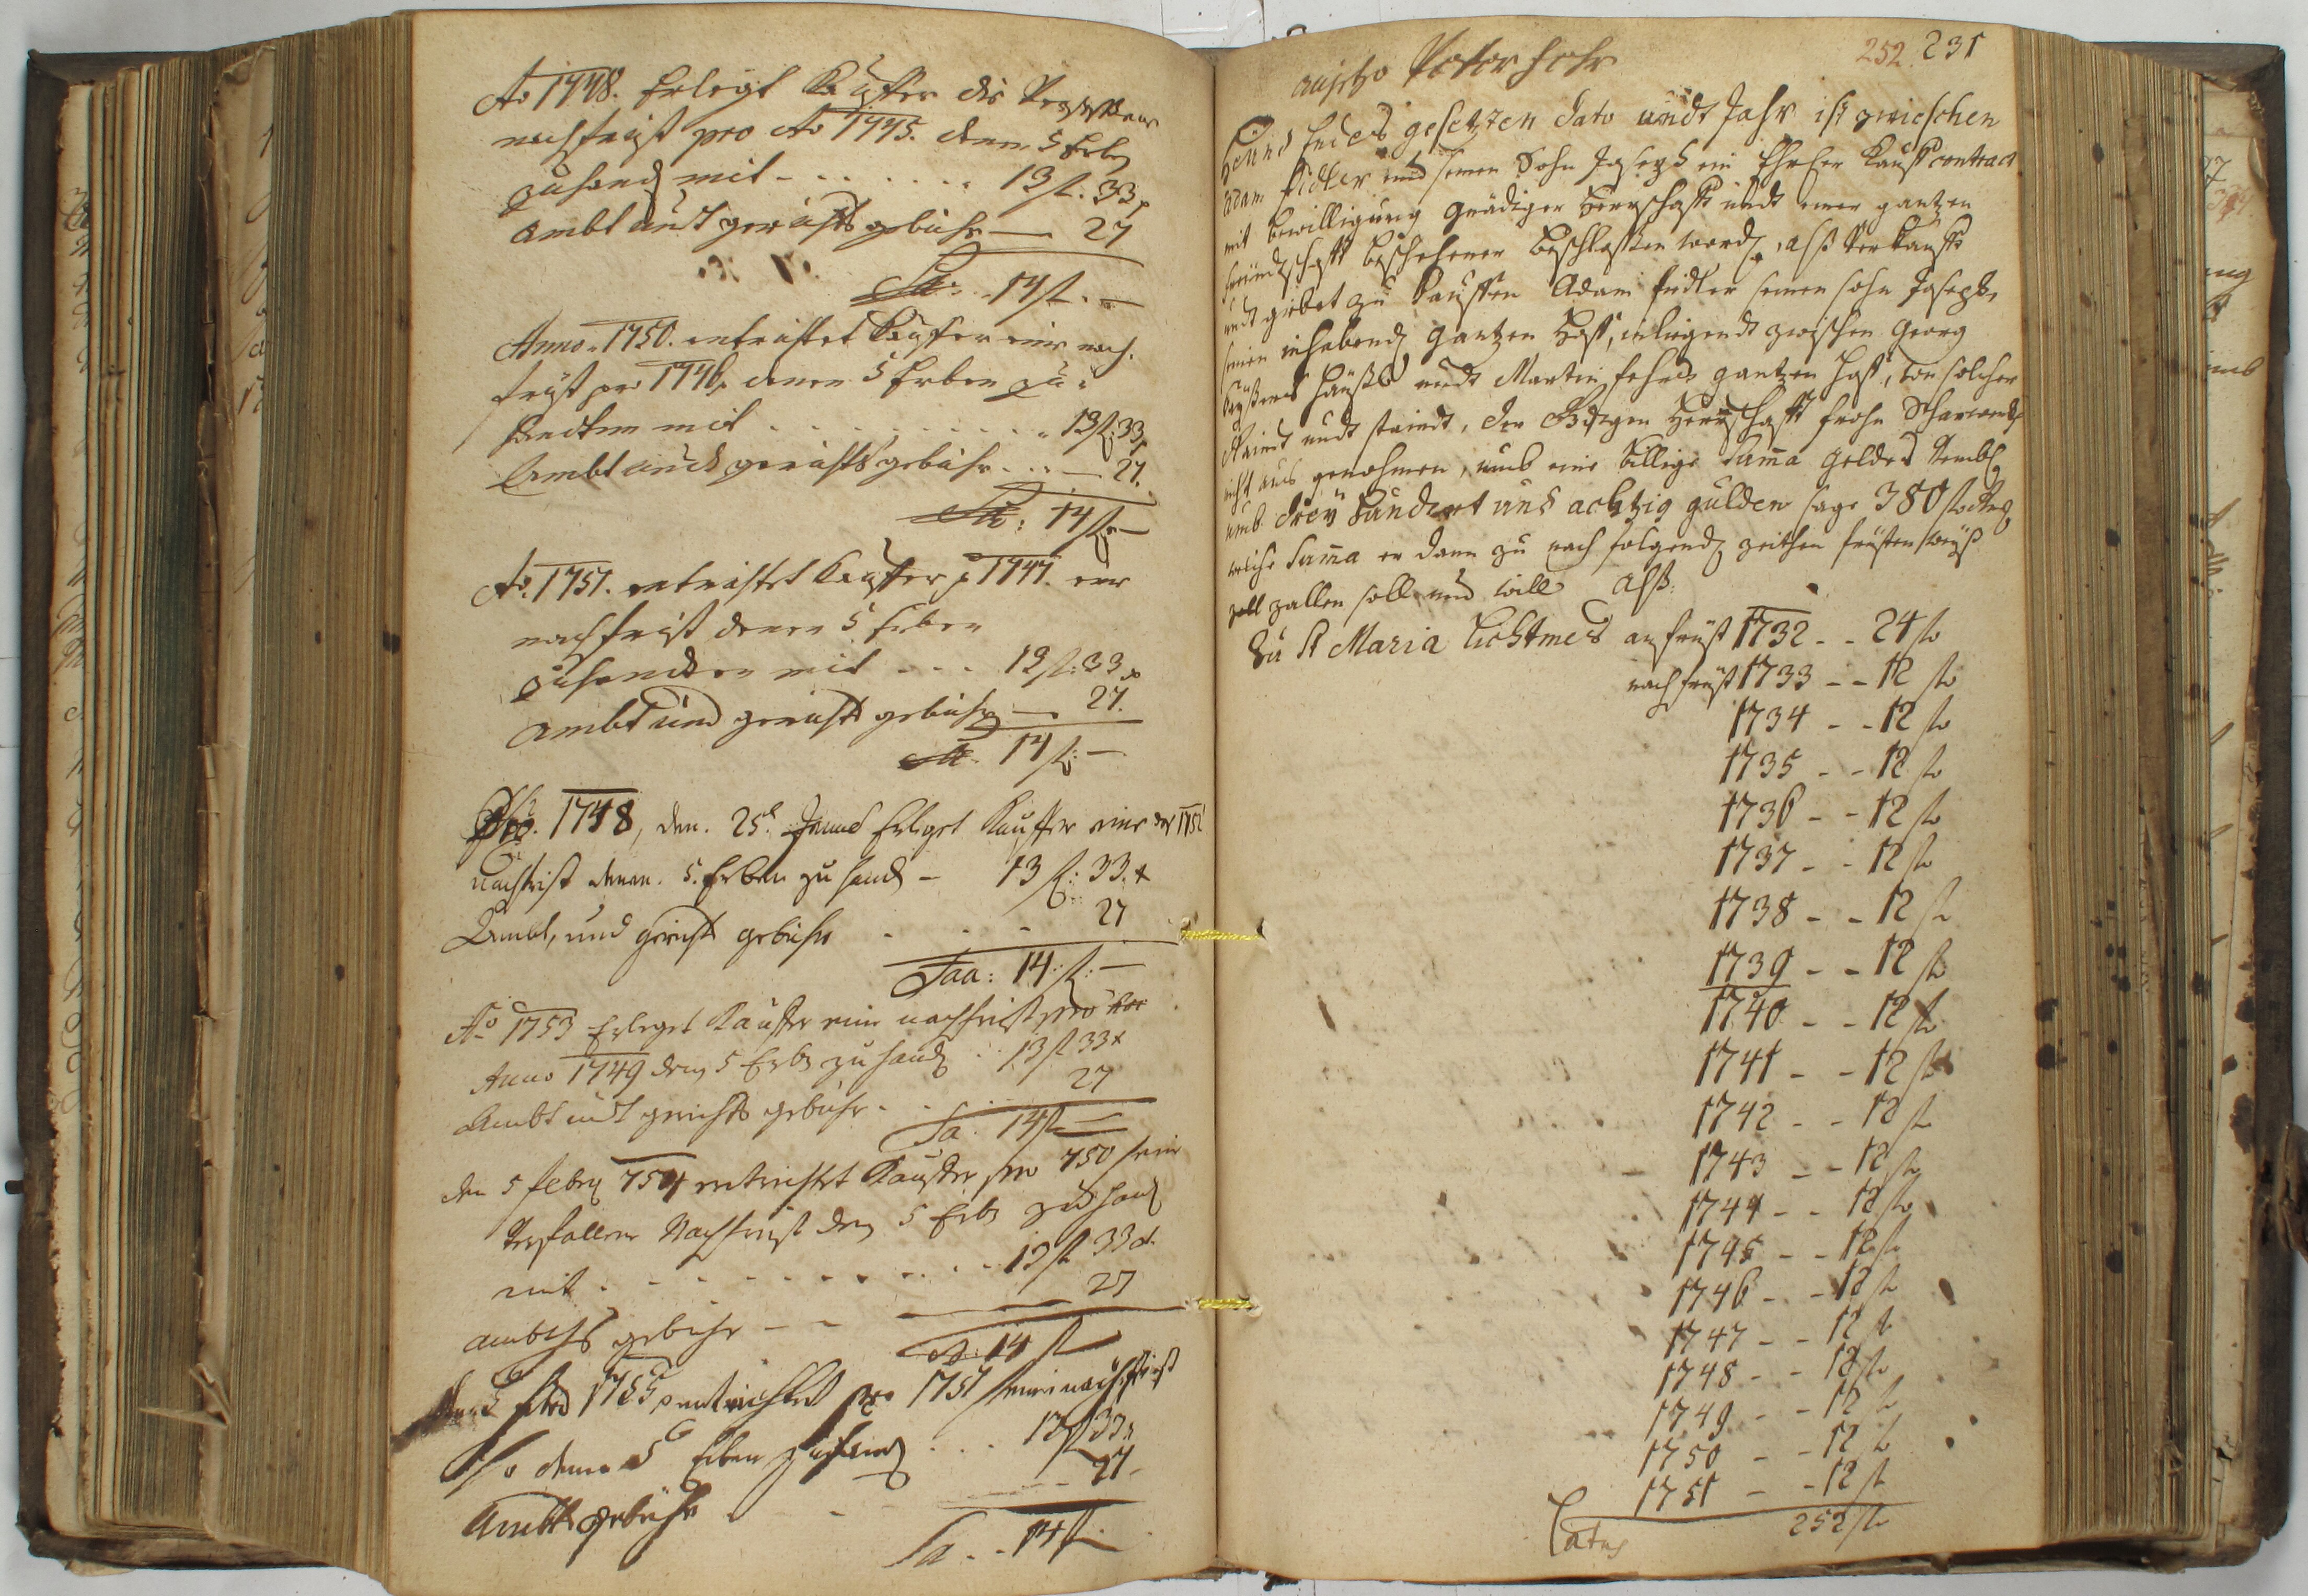 Ao 1748. Erlegt Kauffer die
nachfrist pro Ao 1745. denen 5 Erben
zuhand mit - - - - - - 13 fl. 33 x
Ambt und gerichts gebühr — 27
Sa: 14 fl. —
Anno 1750. entrichtet Kauffer eine nach-
frist pro 1746, denen 5 Erben zu
handten mit . . . . . . . 13 fl. 33 x
Ambt und gerichts gebühr . . — 27.
Sa: 14 fl. —
Ao. 1751. entrichtet Kauffer p 1747. eine
nachfrist denen 5 Erben
zuhandten mit - - - 13 fl: 33 x
Ambt und gerichts gebühr — 27.
Sa. 14 fl: —
1748, den. 25t. Erleget Kauffer eine 1752
nachfrist denen. 5. Erben zu hand - 13 fl: 33. x
Ambt, und gericht gebühr - - - 27
Saa: 14: fl: —
Ao 1753 Erleget Kauffer eine nachfrist pro
Anno 1749 den 5 Erb zu hand . 13 fl 33 x
Ambt undt gerichts gebühr - - 27
Sa. 14 fl —
den 5 febr 754 entrichtet Kauffer pro 750 seine
verfallene Nachfrist den 5 Erb zu hand
mit . - - - - - - - - 13 fl 33 x
27
ambths gebühr - -
Sa: 14 fl
1755 entrichtet pro 1751 seine nachfrist
so denen 5 Erben zuhand . . . 13 fl 33 x
27 -
Ambts gebühr - -
Sa. - 14 fl.
anjetzo Peter
252. 231
Endes gesetzten dato undt Jahr ist zwieschen
Adam fidler und seinen Sohn Joseph ein Ehrlicher Kauff contract
mit bewilligung gnädiger Herrschafft undt einer gantzen
freündtschafft beschehener beschlossen word, alß Verkaufft
undt giebet zu Kauffen Adam fidler seinen sohn Joseph,
seinen inhabend gantzen Hoff, inliegendt zwischen Georg
Häußl undt Martin gantzen Hoff, von solcher
undt, der Herrschafft frohn
nicht aus genohmen, umb eine billige Summa geldes
umb dreÿ hundert und achtzig gulden sage 380 fl
welche Summa er dann zu nach folgend zeithen fristen weiß
zallen soll und will Alß:
Zu St Maria lichtmes anfrist 1732 - - 24 fl
nachfrist 1733 - - 12 fl
1734 - - 12 fl
1735 - - 12 fl
1736 - - 12 fl
1737 - - 12 fl
1738 - - 12 fl
1739 - - 12 fl
1740 - - 12 fl
1741 - - 12 fl
1742 - - 12 fl
1743 - - 12 fl
1744 - - 12 fl
1745 - - 12 fl
1746 - - 12 fl
1747 - - 12 fl
1748 - - 12 fl
1749 - - 12 fl
1750 - - 12 fl
1751 - - 12 fl
Latus 252 fl